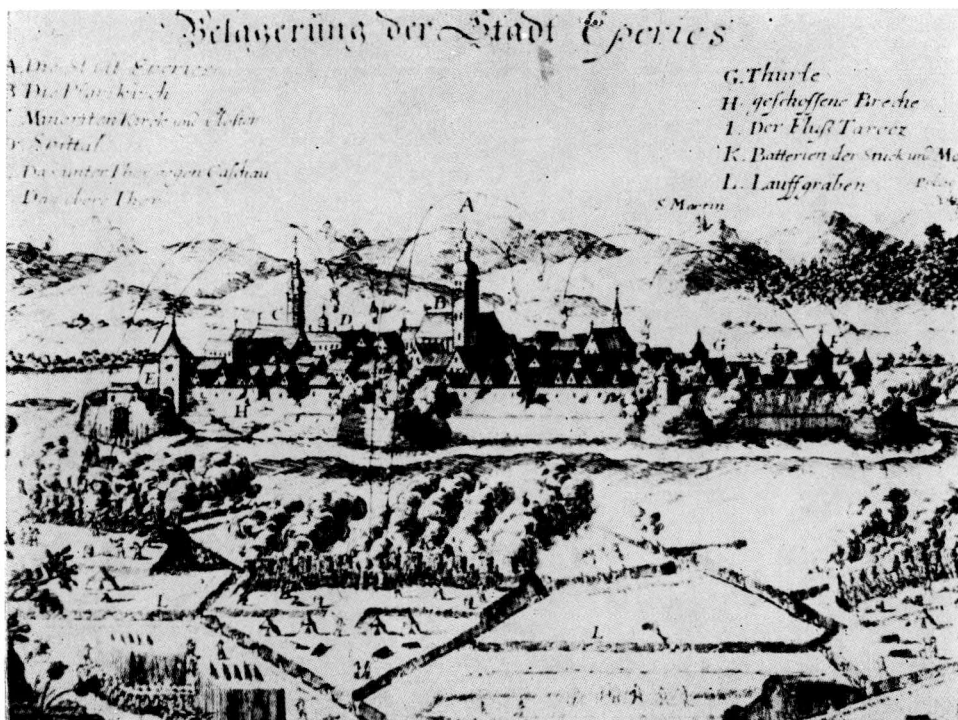 Belagerung der Stadt Eperies
A. Die Statt Eperies
B. Die Pfarrkirch
Minoriten Kirch und Closter
Spittal
Das unter Thor gegen Caschau
Das obere Thor
G. Thürle
H. geschossene Breche
I. Der Fluß Tarcez
K. Batterien der Stuck und
L. Lauffgräben
S. Martin
A
C
D
B
G
F
E
H
I
L